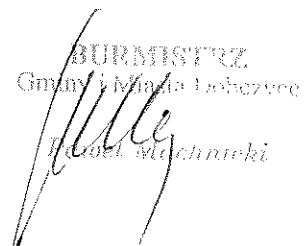 BURMISTRZ
Gminy i Miasta Dobczyce
Paweł Machnicki